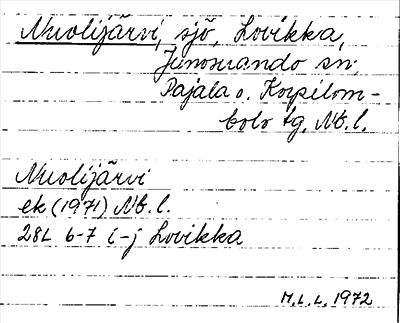 Nuolijärvi, sjö, Lovikka,
Junosuando sn.
Pajala o. Korpilom-
bolo tg, Nb.l.
Nuolijärvi
ek (1971) Nb.l.
28L 6-7 i-j Lovikka
M.L.L. 1972